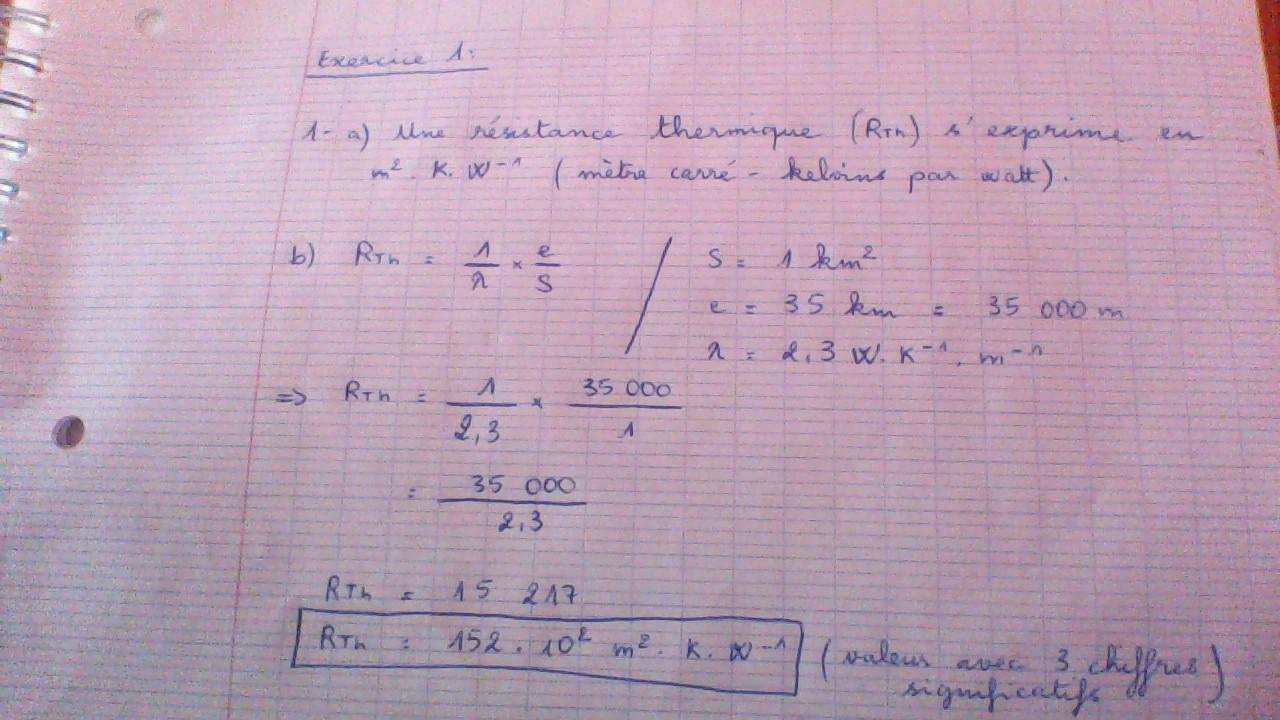 Exercice 1:
1- a) Une résistance thermique (RTh) s'exprime en
m². K. W⁻¹ ( mètre carré - kelvins par watt).
b) RTh = 1/λ × e/S / S = 1 km²
e = 35 km = 35 000 m
λ = 2,3 W. K⁻¹. m⁻¹
=> RTh = 1/2,3 × 35 000/1
= 35 000/2,3
RTh = 15 217
RTh = 152 . 10² m². K. W⁻¹ (valeur avec 3 chiffres
significatifs)